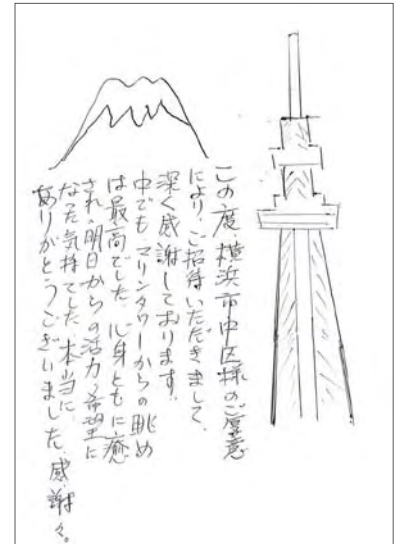 この度、横浜市中区様のご厚意
により、ご招待いただきまして、
深く感謝しております。
中でも マリンタワーからの眺め
は最高でした。心身ともに癒
され、明日からの活力、希望に
なった気持でした。本当に
ありがとうございました。感謝々。